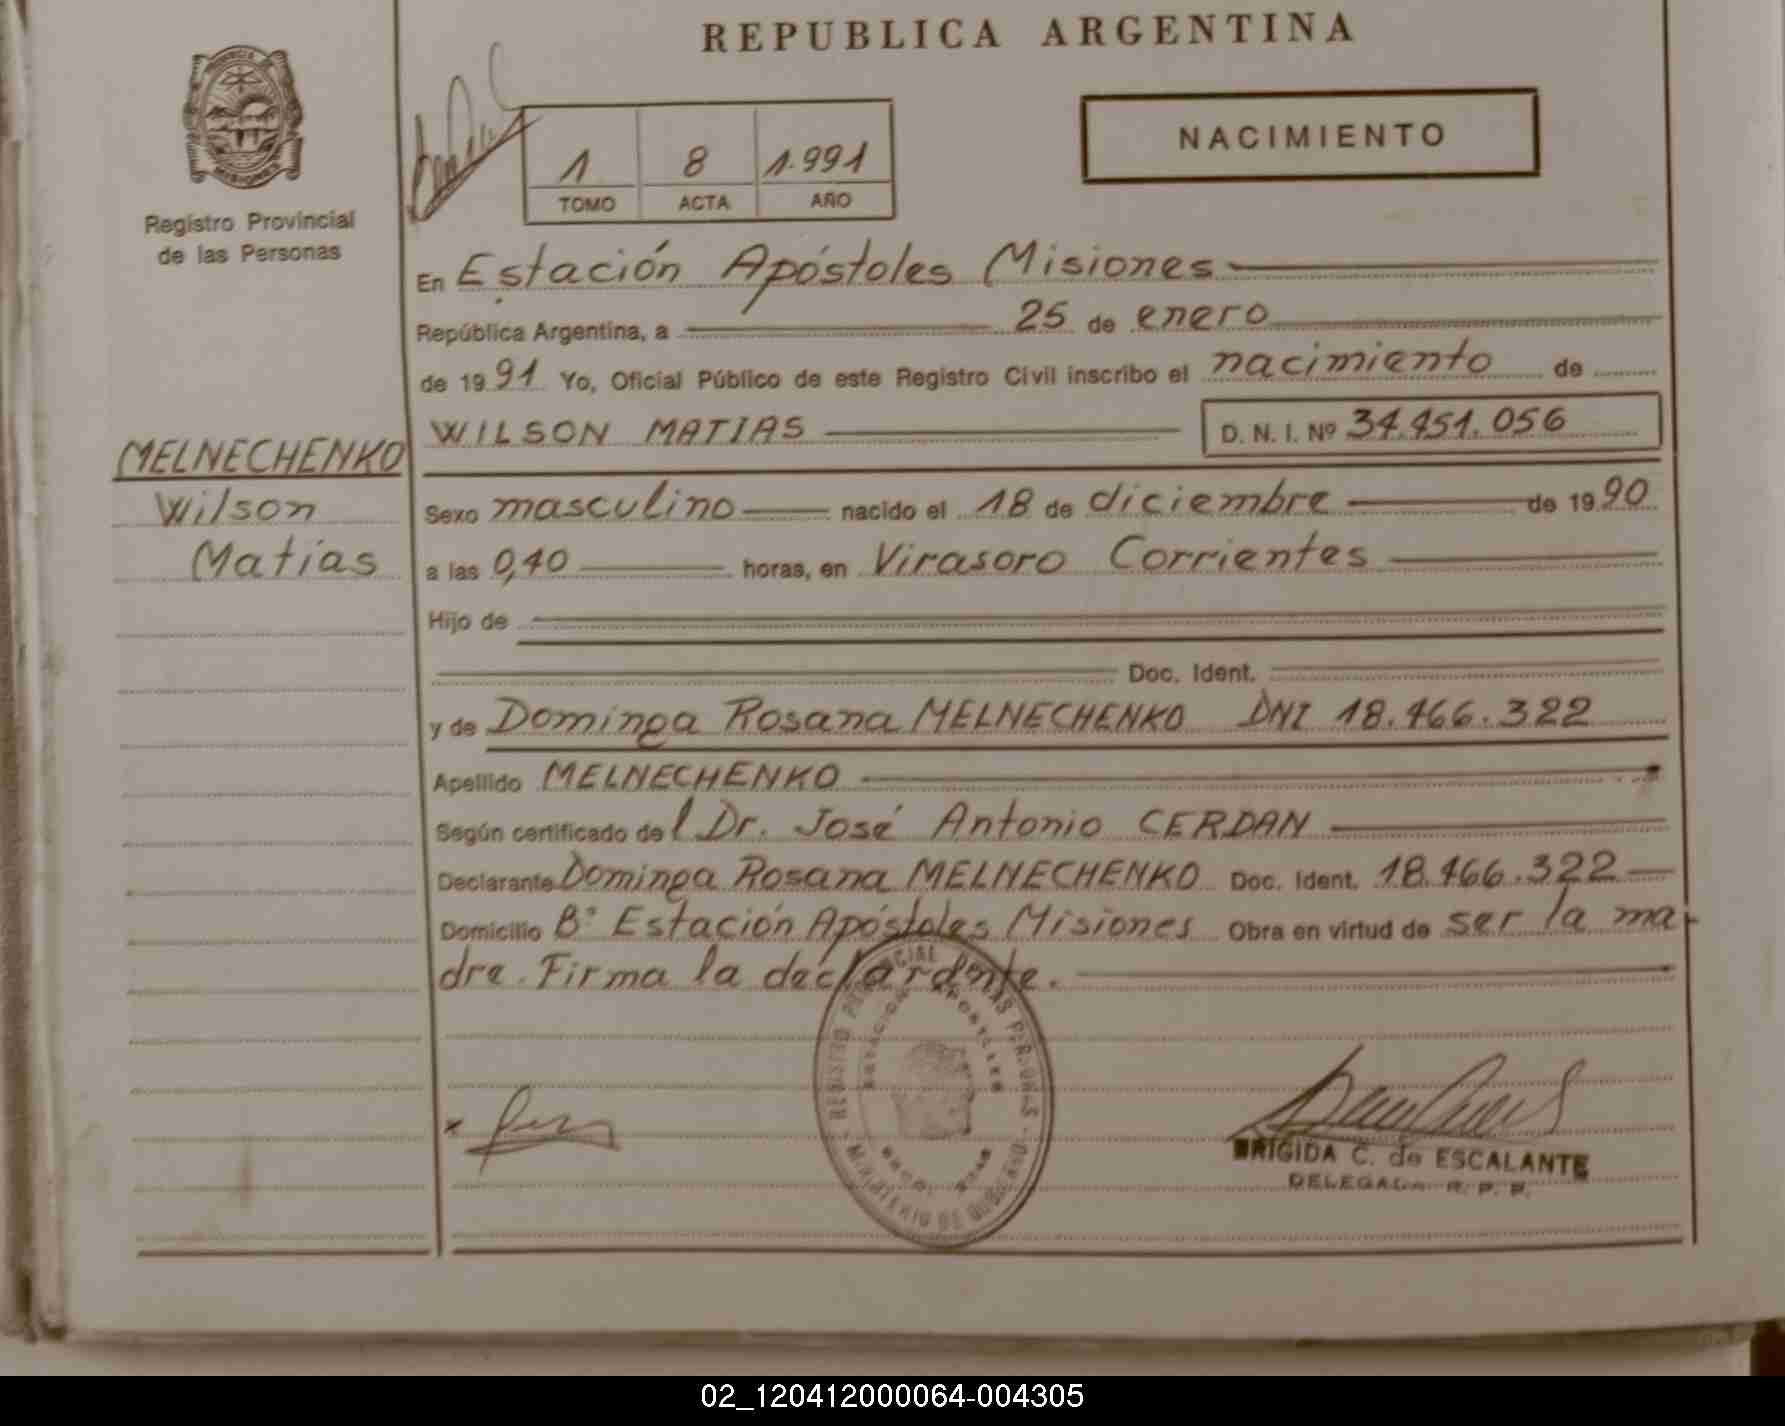 REPUBLICA ARGENTINA
PROVINCIA
MISIONES
Registro Provincial
de las Personas
1 8 1.991
TOMO ACTA AÑO
NACIMIENTO
En Estación Apóstoles Misiones
República Argentina, a 25 de enero
de 1991 Yo, Oficial Público de este Registro Civil inscribo el nacimiento de
WILSON MATIAS D. N. I. Nº 34.451.056
MELNECHENKO
Wilson
Matías
Sexo masculino nacido el 18 de diciembre de 1990
a las 0,40 horas, en Virasoro Corrientes
Hijo de
Doc. Ident.
y de Dominga Rosana MELNECHENKO DNI 18.466.322
Apellido MELNECHENKO
Según certificado del Dr. José Antonio CERDAN
Declarante Dominga Rosana MELNECHENKO Doc. Ident. 18.466.322
Domicilio Bº Estación Apóstoles Misiones Obra en virtud de ser la ma-
dre. Firma la declarante.
REGISTRO PROVINCIAL DE LAS PERSONAS
ESTACION APOSTOLES
MINISTERIO DE GOBIERNO
BRIGIDA C. de ESCALANTE
DELEGADA R. P. P.
02_120412000064-004305